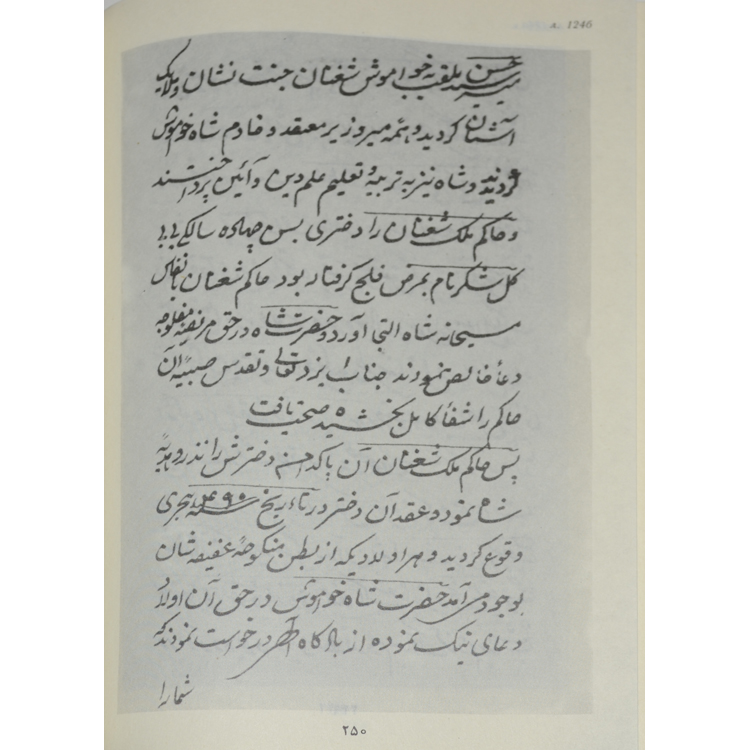 A.. 1246
میر سید حسن ملقب بخواموش شغنان جنت نشان و ملایک
آستان گردید و همه میر وزیر معتقد و خادم شاه خواموش
گردیدند و شاه نیز به تربیه و تعلیم علم دین و آئین پرداختند
و حاکم ملک شغنان را دختری بسن چهارده سالگی بی بی
گل شکر نام بمرض فلج گرفتار بود حاکم شغنان بانفاس
مسیحانه شاه التجا آورد و حضرت شاه در حق مریضه مفلوجه
دعأ خالص نمودند جناب ایزد تعالی و تقدس صبیهٔ آن
حاکم را شفأ کامل بخشید صحت یافت
پس حاکم ملک شغنان آن پاکدامن دخترش را نذر و هدیه
شاه نمود و عقد آن دختر در تاریخ سنه ۴۹۰ هجری
وقوع گردید و هر اولاد دیکه از بطن منکوحهٔ عفیفه شان
بوجود می آمد حضرت شاه خواموش در حق آن اولاد
دعای نیک نموده از بارگاه الٰهی درخواست نمودند که
شما را
۲۵۰